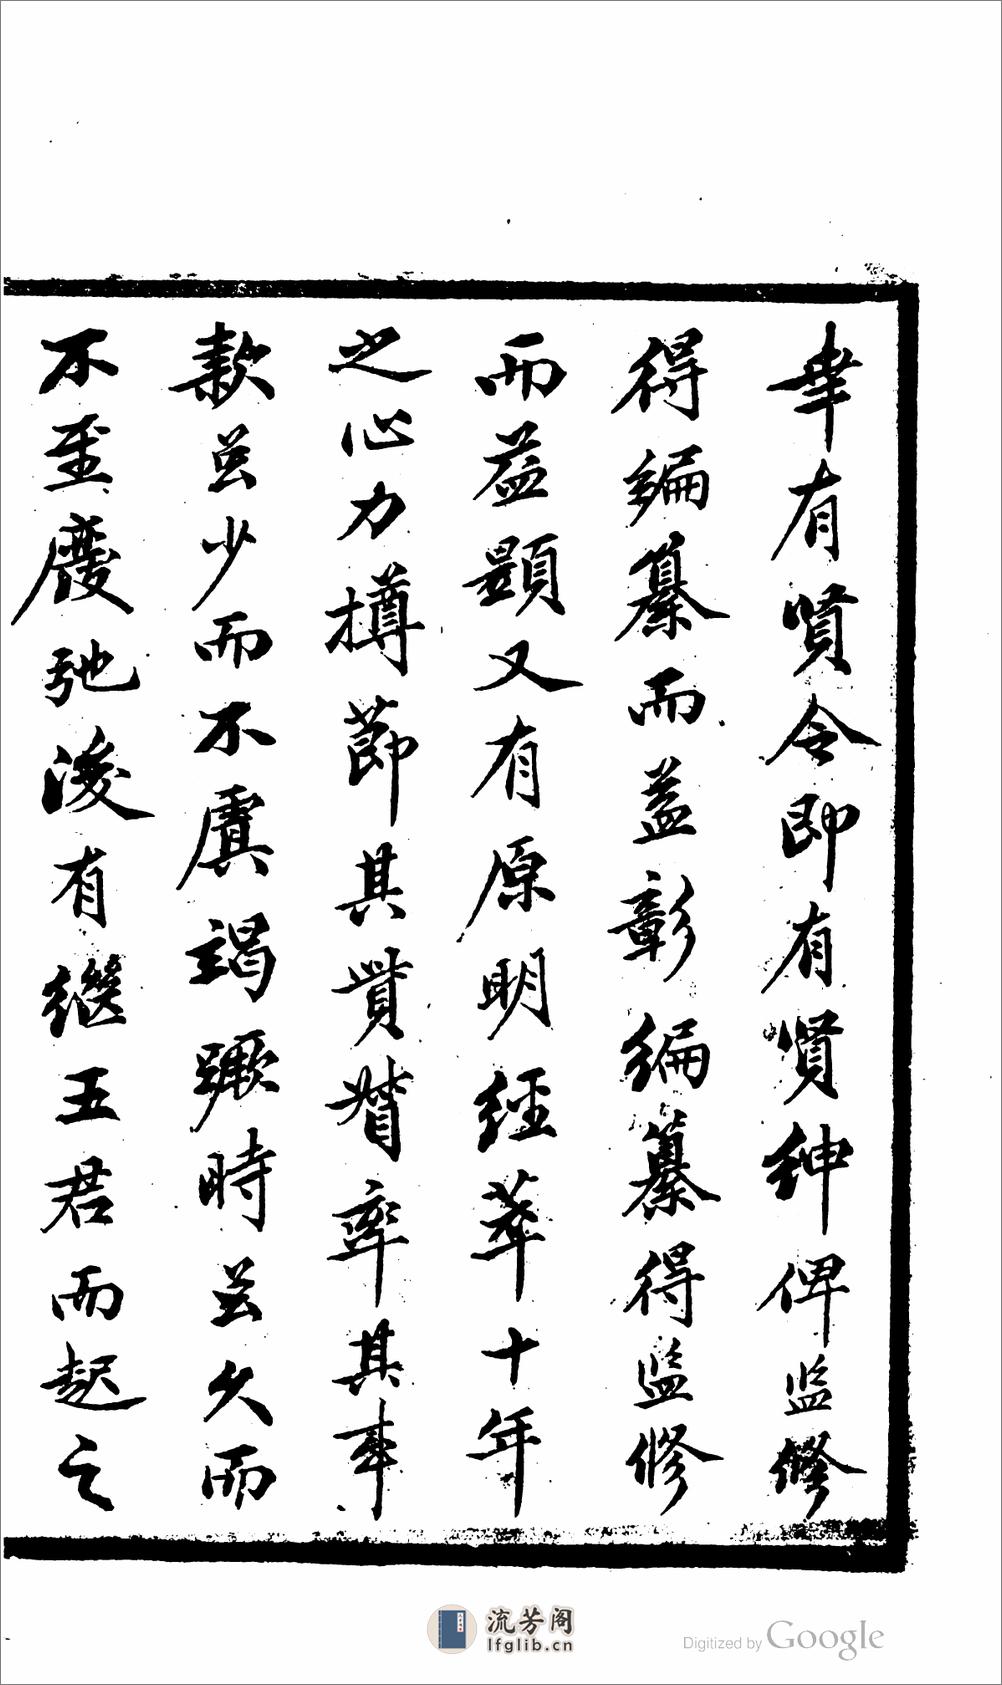 幸有贤令即有贤绅俾监修
得编纂而益彰编纂得监修
而益顕又有原明经萃十年
之心力撙節其貲督率其事
款玆少而不虞竭蹶時玆久而
不至廢弛後有繼五君而起之
流芳阁
lfglib.cn
Digitized by Google